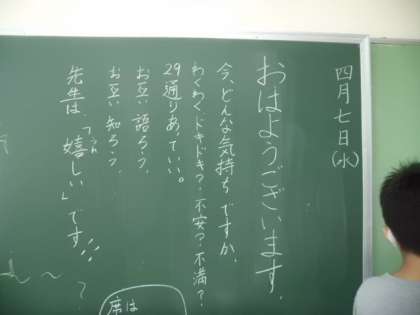 四月七日(水)
おはようございます。
今、どんな気持ちですか。
わくわく?ドキドキ?不安?不満?
29通りあっていい。
お互い語ろう。
お互い知ろう。
先生は、「嬉しい」です。
うれ
?
席は